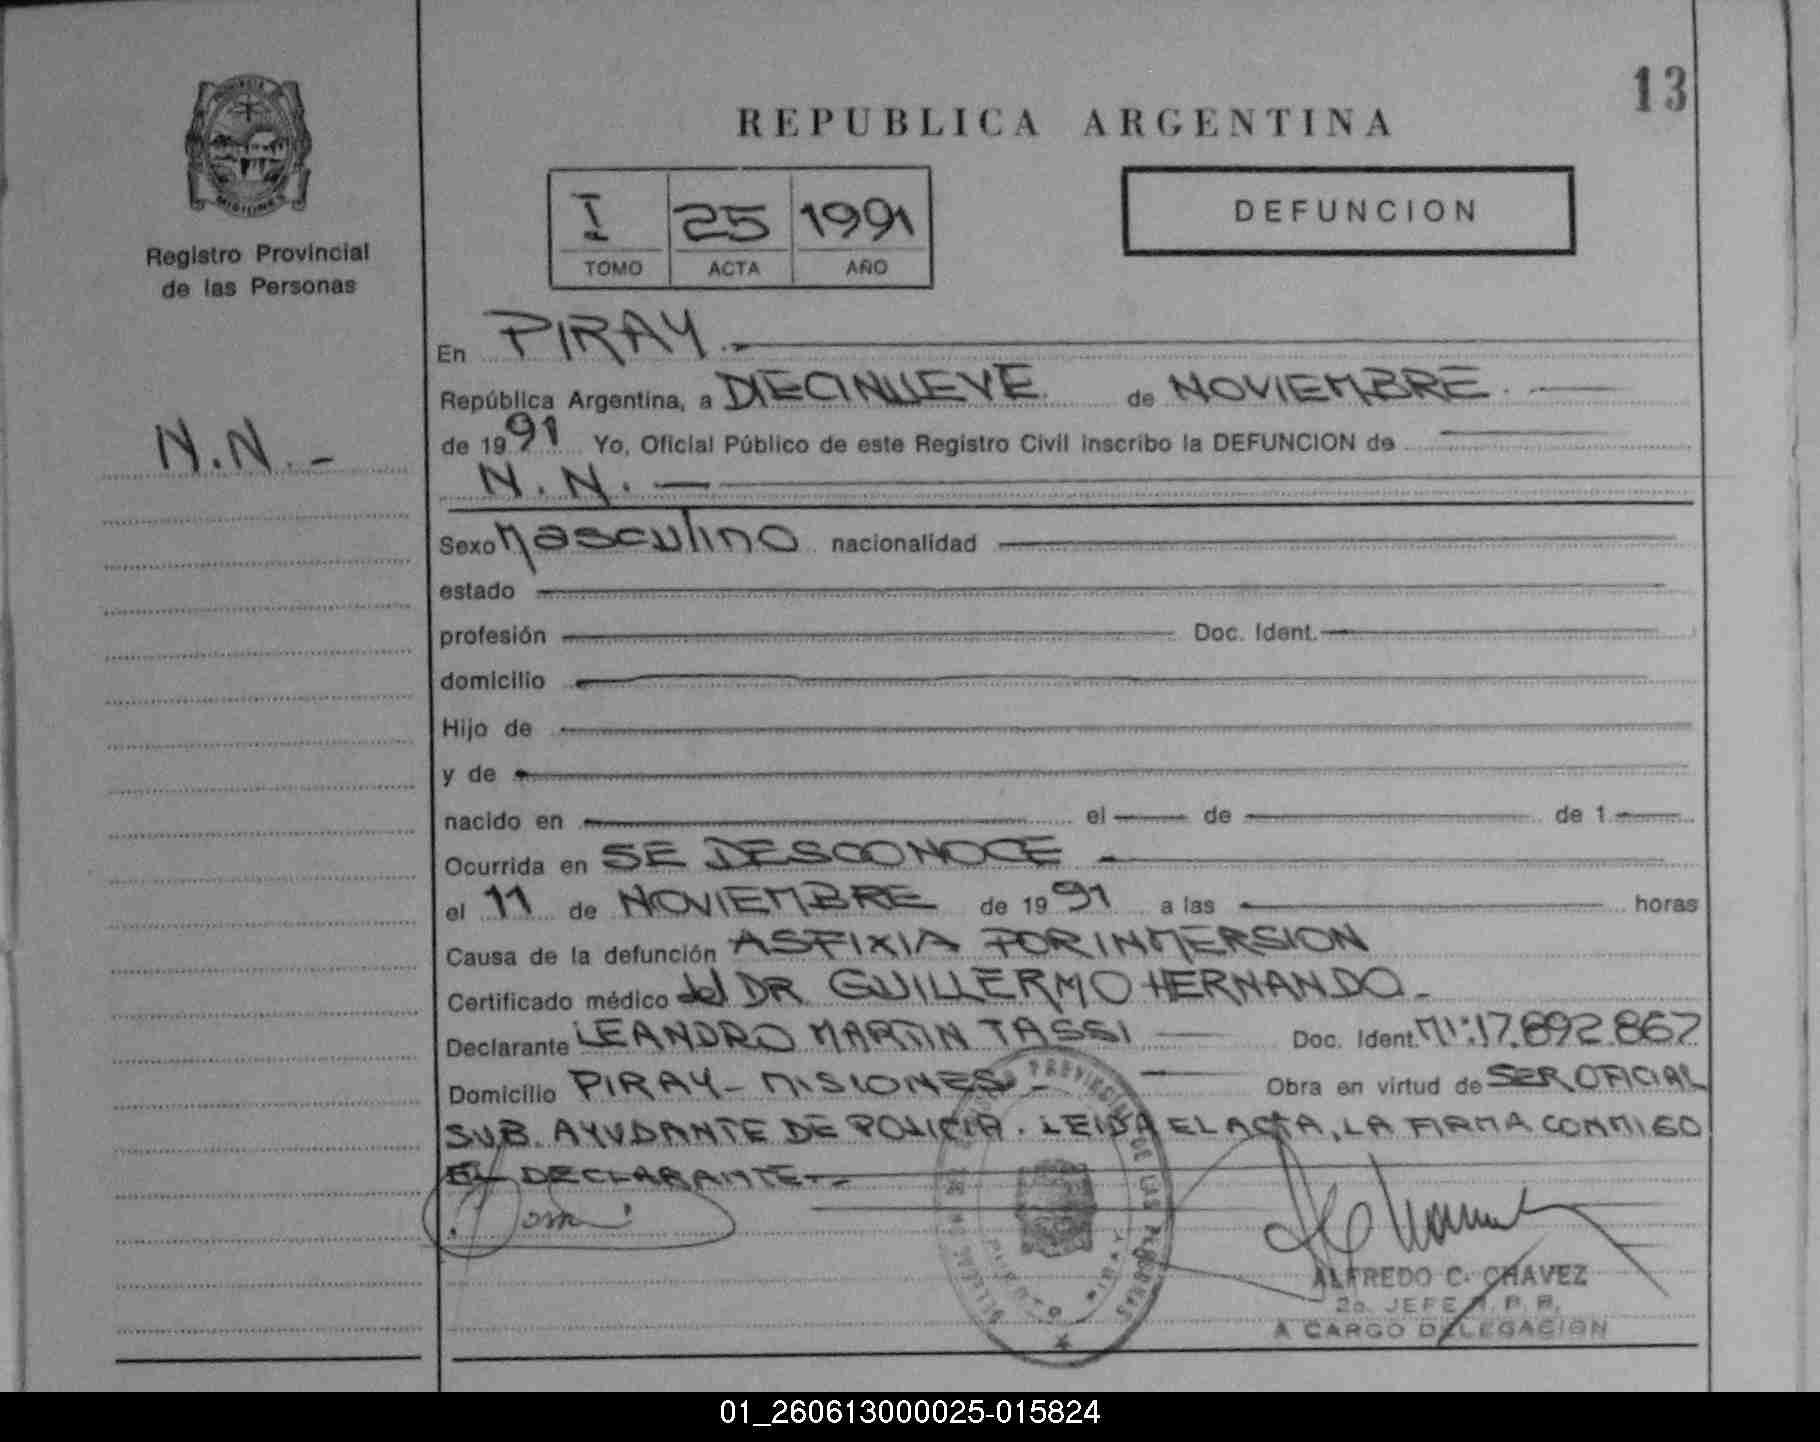 13
REPUBLICA ARGENTINA
MISIONES
Registro Provincial
de las Personas
I 25 1991
TOMO ACTA AÑO
DEFUNCION
N.N.-
En PIRAY.-
República Argentina, a DIECINUEVE de NOVIEMBRE.
de 1991 Yo, Oficial Público de este Registro Civil inscribo la DEFUNCION de
N.N.-
Sexo Masculino nacionalidad
estado
profesión Doc. Ident.
domicilio
Hijo de
y de
nacido en el de de 1
Ocurrida en SE DESCONOCE
el 11 de NOVIEMBRE de 1991 a las horas
Causa de la defunción ASFIXIA POR INMERSION
Certificado médico del DR GUILLERMO HERNANDO-
Declarante LEANDRO MARTIN TASSI Doc. Ident. M:17.892.867
Domicilio PIRAY- MISIONES- Obra en virtud de SER OFICIAL
SUB. AYUDANTE DE POLICIA. LEIDA EL ACTA, LA FIRMA CONMIGO
EL DECLARANTE-
ALFREDO C. CHAVEZ
2o. JEFE R. P. P.
A CARGO DELEGACION
01_260613000025-015824